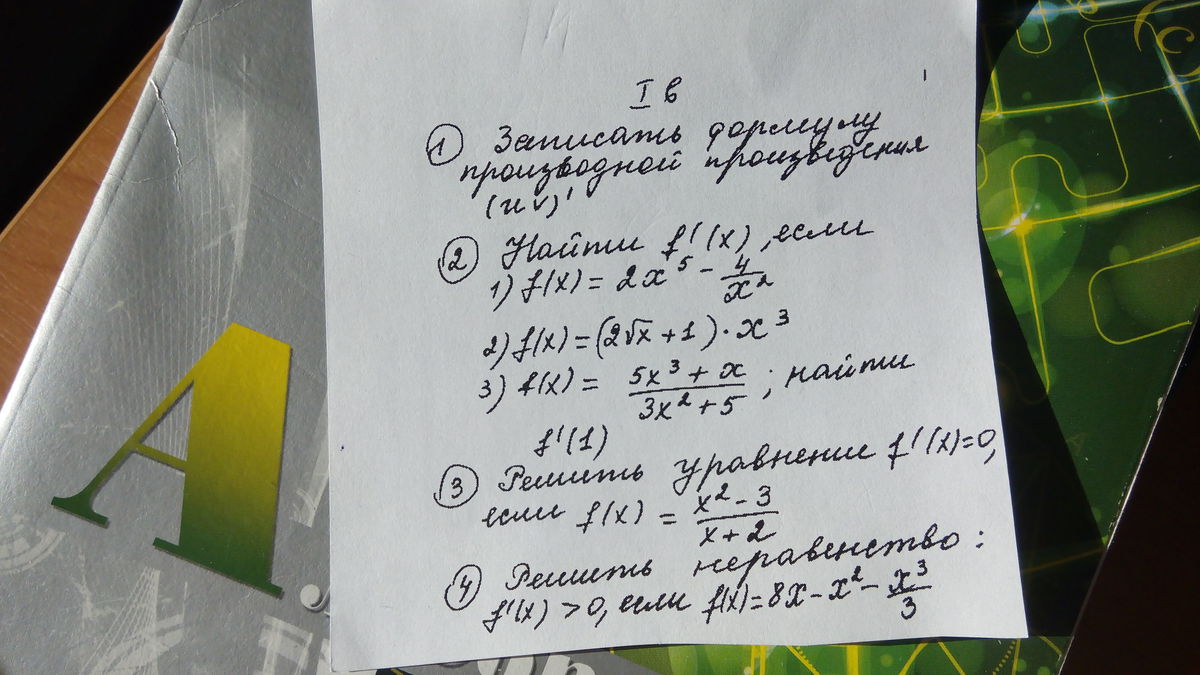 I в
① Записать формулу
производной произведения
(uv)'
② Найти f'(x), если
1) f(x) = 2x⁵ - 4/x²
2) f(x) = (2√x + 1) · x³
3) f(x) = (5x³ + x)/(3x² + 5) ; найти
f'(1)
③ Решить уравнении f'(x)=0,
если f(x) = (x² - 3)/(x + 2)
④ Решить неравенство:
f'(x) > 0, если f(x) = 8x - x² - x³/3
А